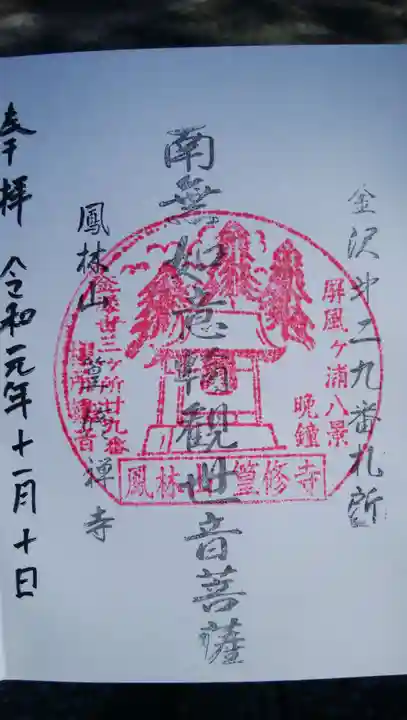 金沢第二九番札所
南無如意輪觀世音菩薩
鳳林山 篁修禅寺
奉拝 令和元年十一月十日
屏風ヶ浦八景
晩鐘
卅三ヶ所廿九番
音
鳳林
篁修寺